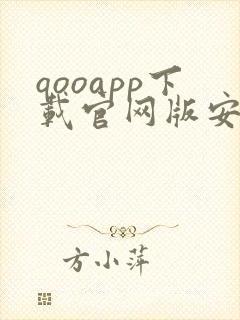 qooapp下
载官网版安
方小萍